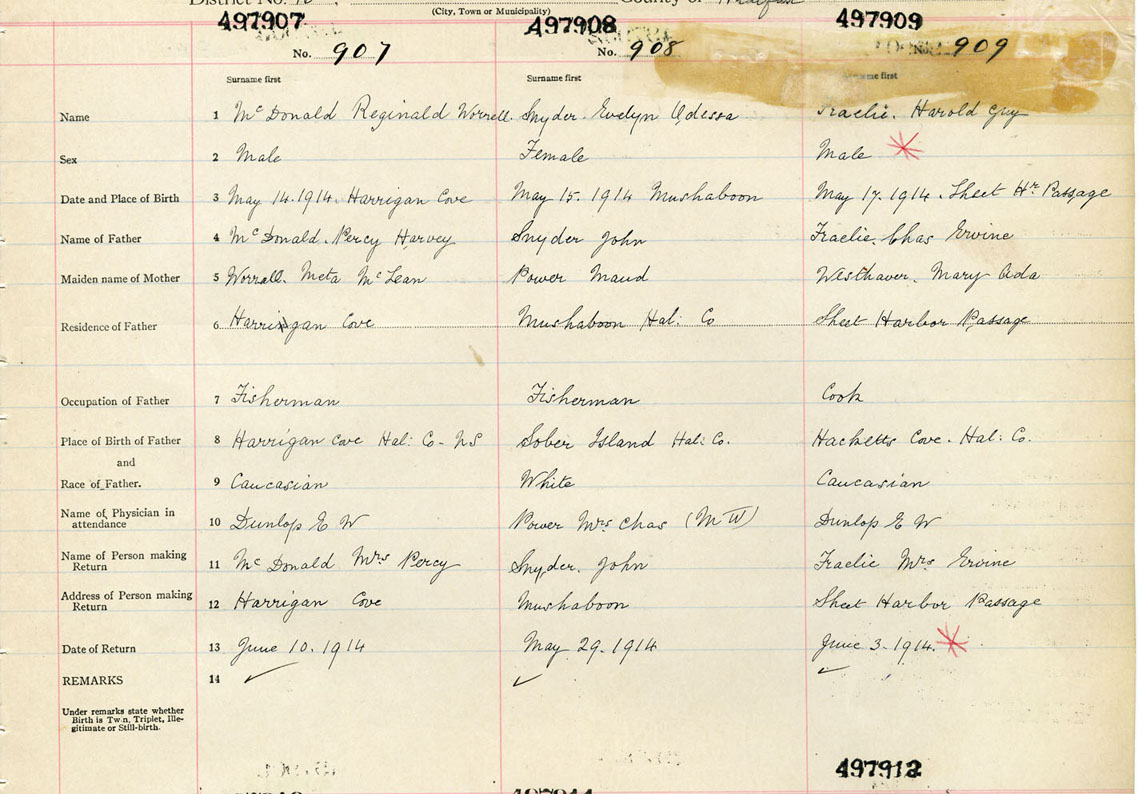 District No. County of Halifax
(City, Town or Municipality)
497907 497908 497909
No. 907 No. 908 No. 909
Surname first Surname first Surname first
Name 1 McDonald Reginald Worrell. Snyder. Evelyn Odessa Fraelic. Harold Guy
Sex 2 Male Female Male
Date and Place of Birth 3 May 14.1914. Harrigan Cove May 15. 1914 Mushaboon May 17. 1914. Sheet Hr. Passage
Name of Father 4 McDonald. Percy Harvey Snyder John Fraelic. Chas Ervine
Maiden name of Mother 5 Worrell. Meta McLean Power Maud Westhaver. Mary Ada
Residence of Father 6 Harrigan Cove Mushaboon Hal: Co Sheet Harbor Passage
Occupation of Father 7 Fisherman Fisherman Cook
Place of Birth of Father 8 Harrigan Cove Hal: Co- NS Sober Island Hal: Co. Hacketts Cove. Hal: Co.
and
Race of Father. 9 Caucasian White Caucasian
Name of Physician in
attendance 10 Dunlop E W Power Mrs Chas (MW) Dunlop E W
Name of Person making
Return 11 McDonald Mrs Percy Snyder. John Fraelic Mrs Ervine
Address of Person making
Return 12 Harrigan Cove Mushaboon Sheet Harbor Passage
Date of Return 13 June 10. 1914 May 29. 1914 June 3. 1914.
REMARKS 14
Under remarks state whether
Birth is Twin, Triplet, Ille-
gitimate or Still-birth.
497912